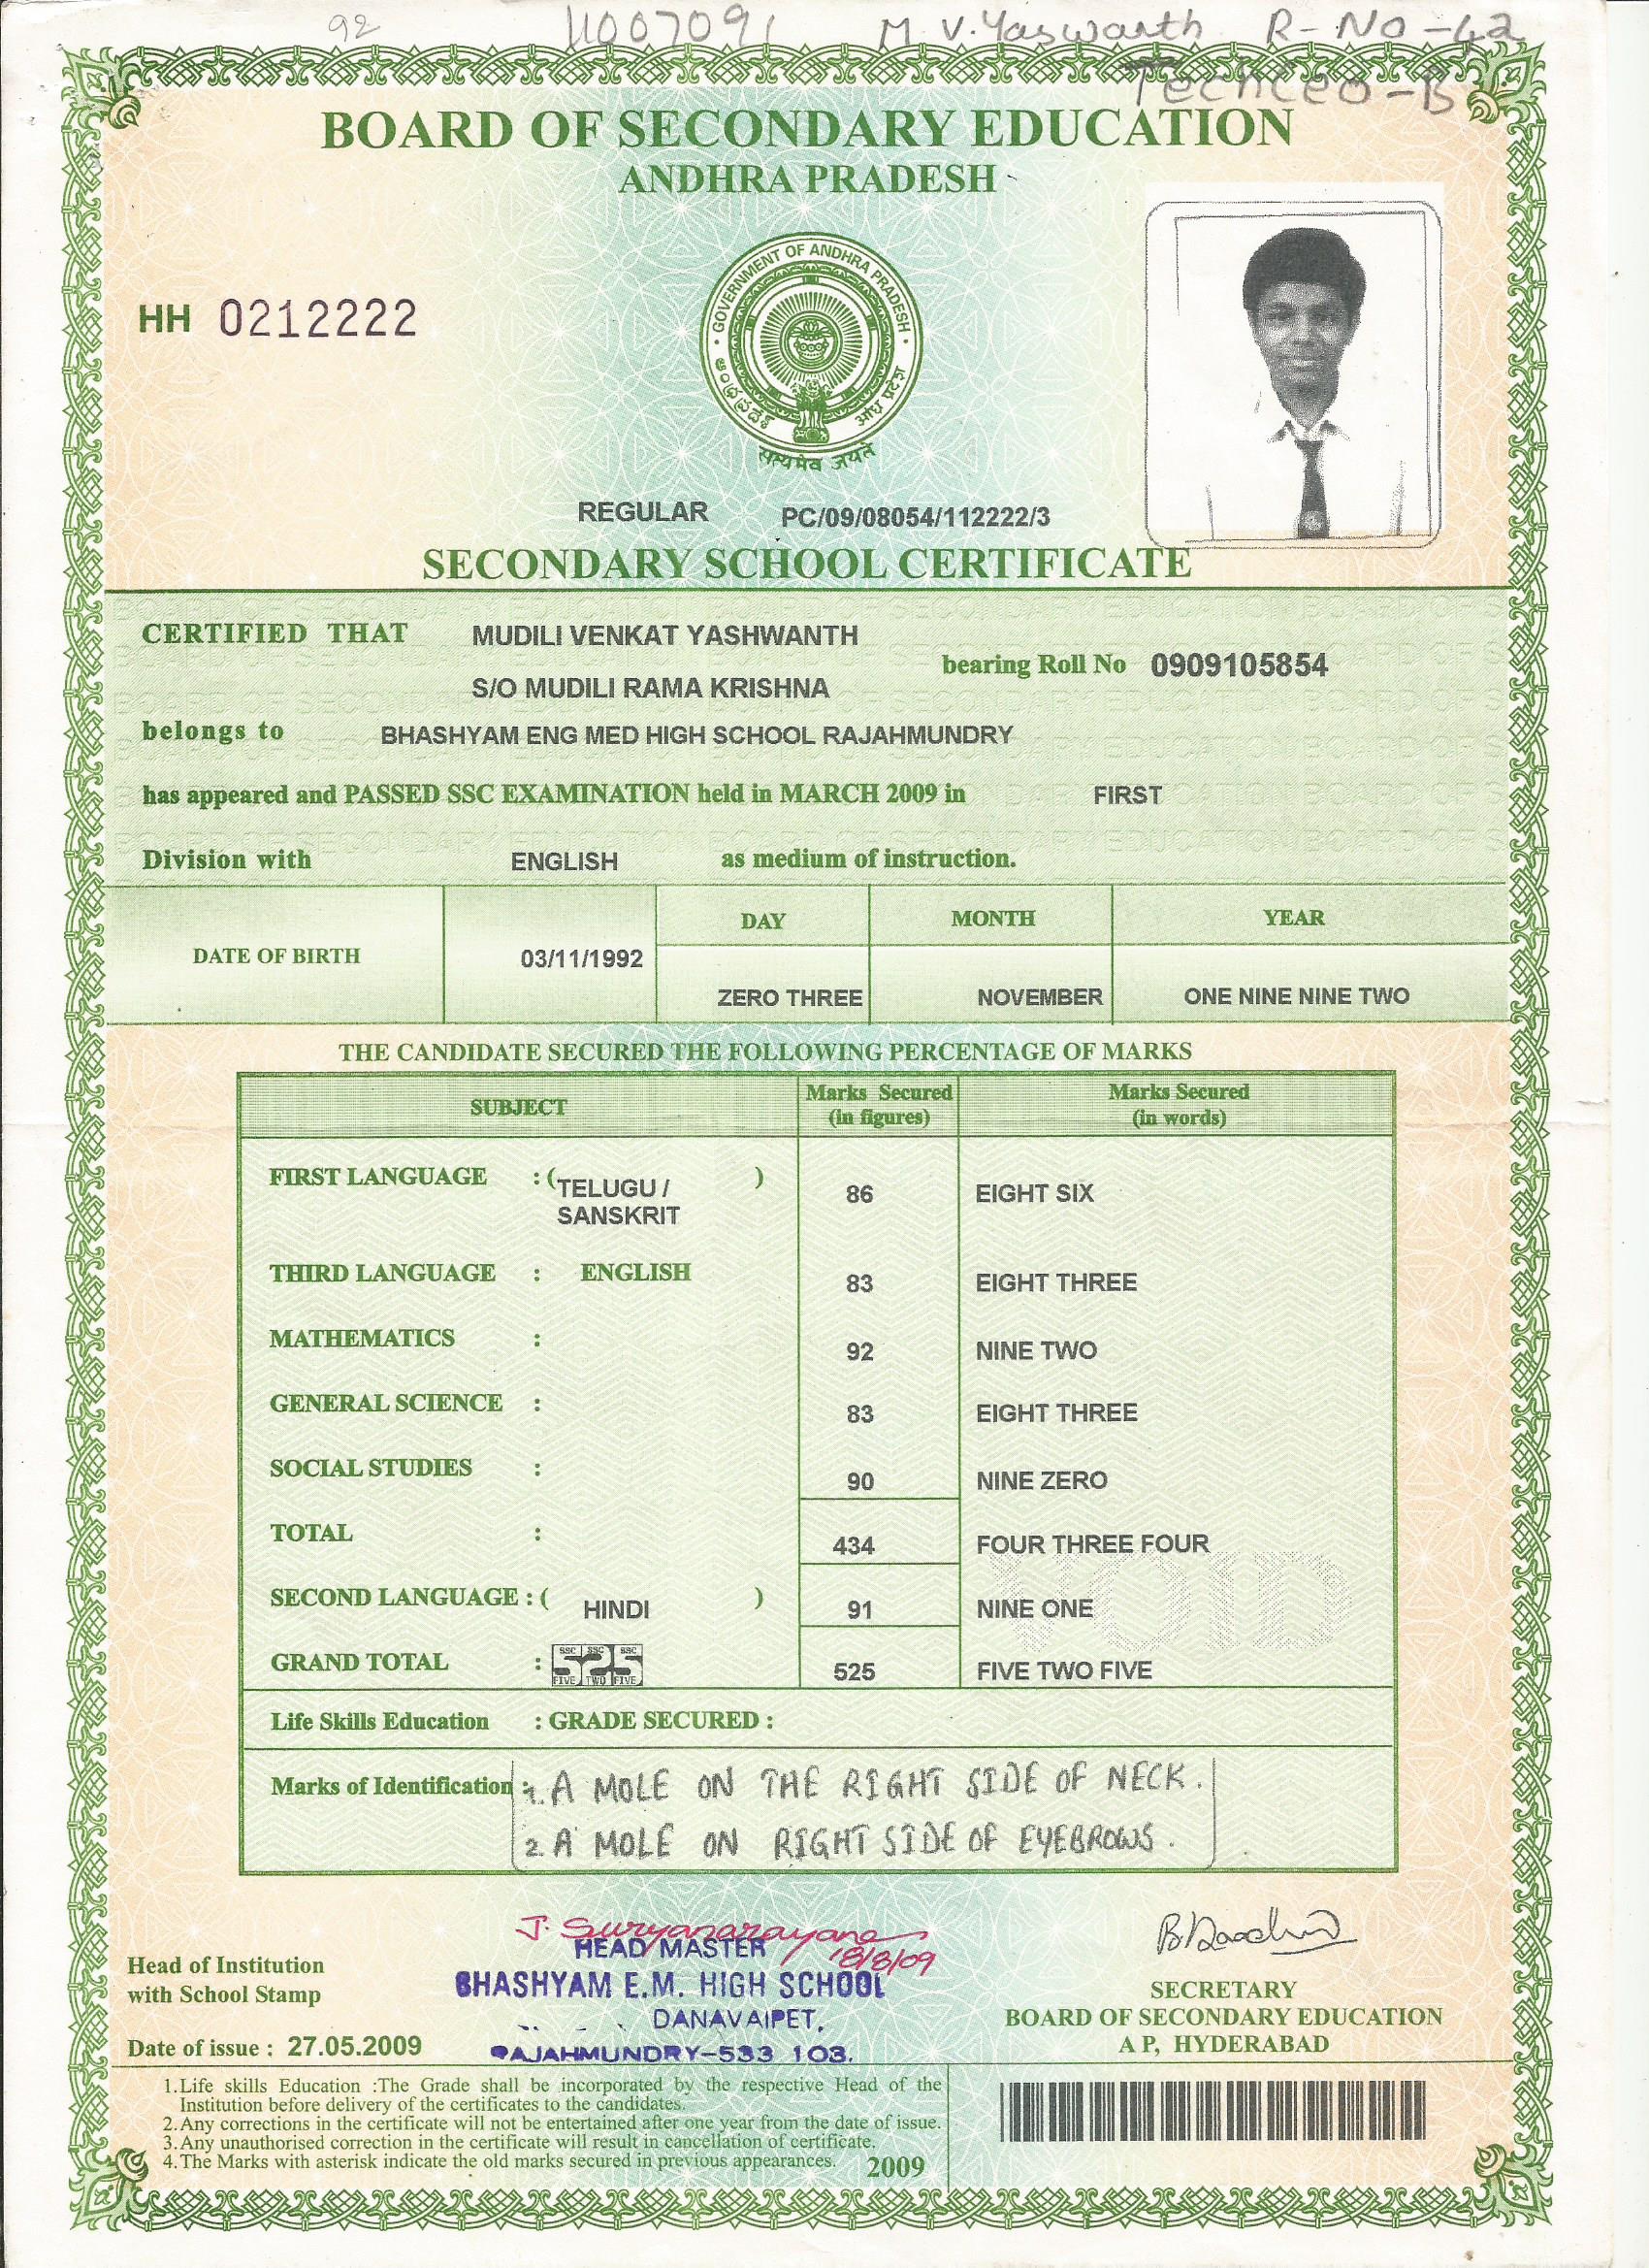 92 11007091 M V. Yaswanth R-NO-42
Techceo-B
BOARD OF SECONDARY EDUCATION
ANDHRA PRADESH
GOVERNMENT OF ANDHRA PRADESH
ఆంధ్రప్రదేశ్ आंध्र प्रदेश
सत्यमेव जयते
HH 0212222
REGULAR PC/09/08054/112222/3
SECONDARY SCHOOL CERTIFICATE
CERTIFIED THAT MUDILI VENKAT YASHWANTH
bearing Roll No 0909105854
S/O MUDILI RAMA KRISHNA
belongs to BHASHYAM ENG MED HIGH SCHOOL RAJAHMUNDRY
has appeared and PASSED SSC EXAMINATION held in MARCH 2009 in FIRST
Division with ENGLISH as medium of instruction.
DAY MONTH YEAR
DATE OF BIRTH 03/11/1992
ZERO THREE NOVEMBER ONE NINE NINE TWO
THE CANDIDATE SECURED THE FOLLOWING PERCENTAGE OF MARKS
SUBJECT Marks Secured (in figures) Marks Secured (in words)
FIRST LANGUAGE : ( TELUGU / SANSKRIT ) 86 EIGHT SIX
THIRD LANGUAGE : ENGLISH 83 EIGHT THREE
MATHEMATICS : 92 NINE TWO
GENERAL SCIENCE : 83 EIGHT THREE
SOCIAL STUDIES : 90 NINE ZERO
TOTAL : 434 FOUR THREE FOUR
VOID
SECOND LANGUAGE : ( HINDI ) 91 NINE ONE
GRAND TOTAL : SSC SSC SSC 525 FIVE TWO FIVE 525 FIVE TWO FIVE
Life Skills Education : GRADE SECURED :
Marks of Identification : 1. A MOLE ON THE RIGHT SIDE OF NECK.
2. A MOLE ON RIGHT SIDE OF EYEBROWS.
J. Suryanarayana
18/8/09
Head of Institution
with School Stamp
HEAD MASTER
BHASHYAM E.M. HIGH SCHOOL
DANAVAIPET,
RAJAHMUNDRY-533 103.
SECRETARY
BOARD OF SECONDARY EDUCATION
A P, HYDERABAD
Date of issue : 27.05.2009
1.Life skills Education :The Grade shall be incorporated by the respective Head of the
Institution before delivery of the certificates to the candidates.
2.Any corrections in the certificate will not be entertained after one year from the date of issue.
3.Any unauthorised correction in the certificate will result in cancellation of certificate.
4.The Marks with asterisk indicate the old marks secured in previous appearances. 2009